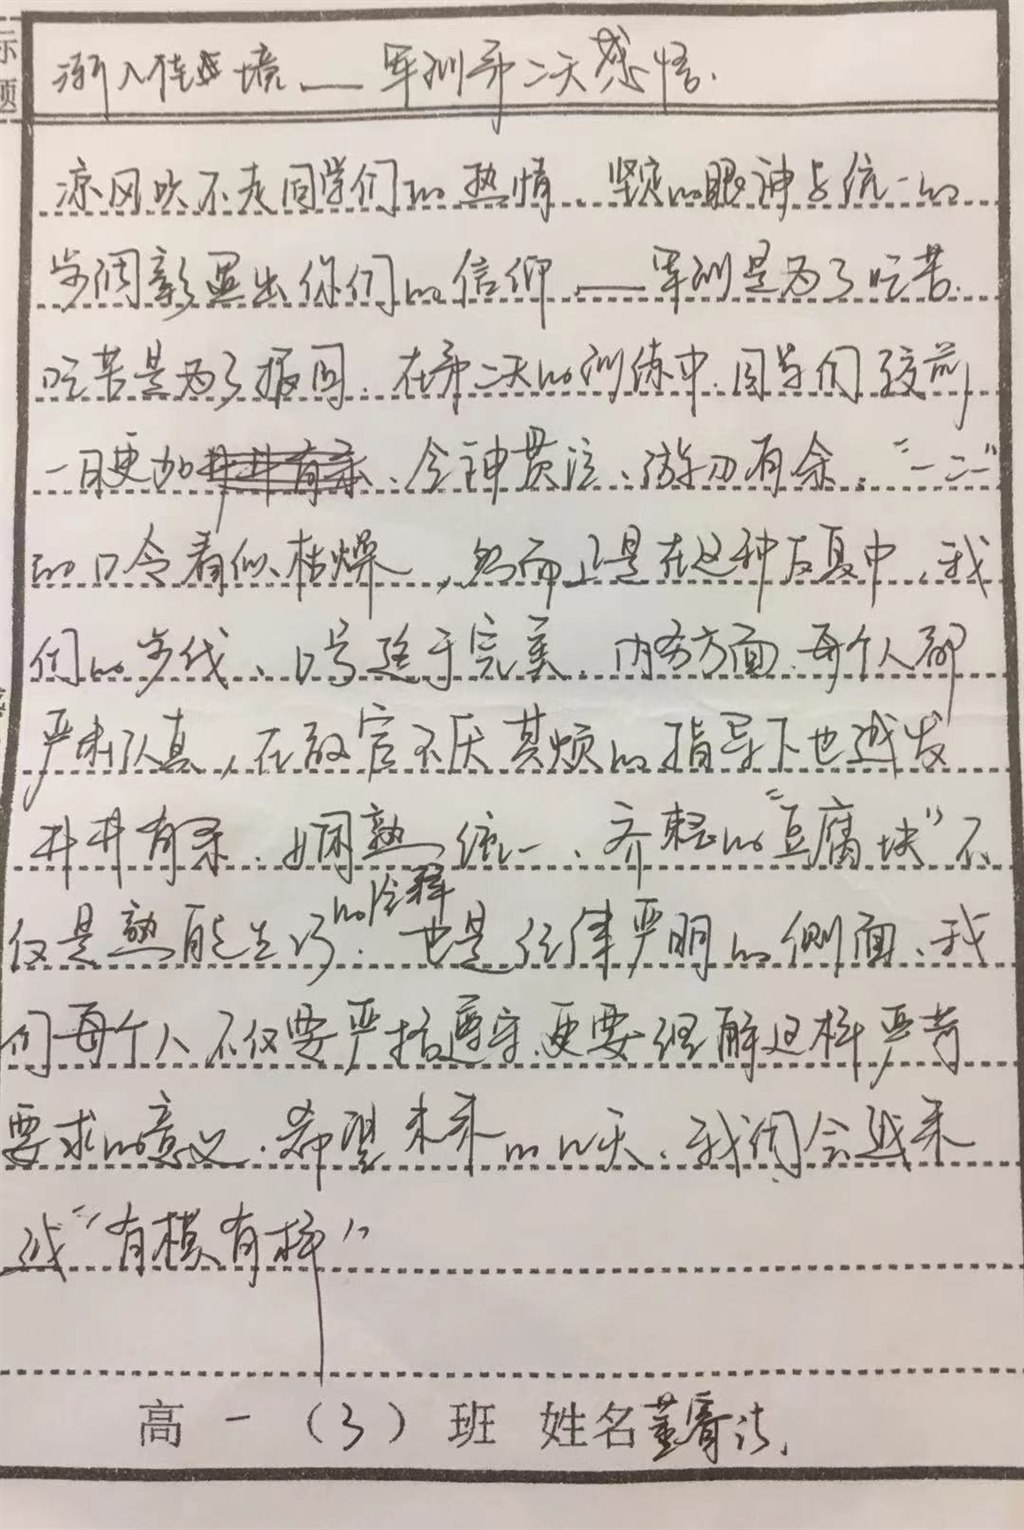 标题
渐入佳境——军训第二天感悟.
凉风吹不走同学们的热情、坚定的眼神与统一的
步调彰显出你们的信仰、——军训是为了吃苦.
吃苦是为了报国.在第二天的训练中.同学们较前
一日更加井井有条、全神贯注、游刃有余."一二一"
的口令看似枯燥,然而正是在这种反复中,我
们的步伐、口号趋于完美.内务方面.每个人都
严肃认真,在教官不厌其烦的指导下也越发
井井有条、娴熟统一、齐整的"豆腐块"不
仅是熟能生巧的诠释.也是纪律严明的侧面、我
们每个人不仅要严格遵守.更要理解这样严苛
要求的意义.希望未来的几天、我们会越来
越"有模有样"
高一(3)班 姓名董